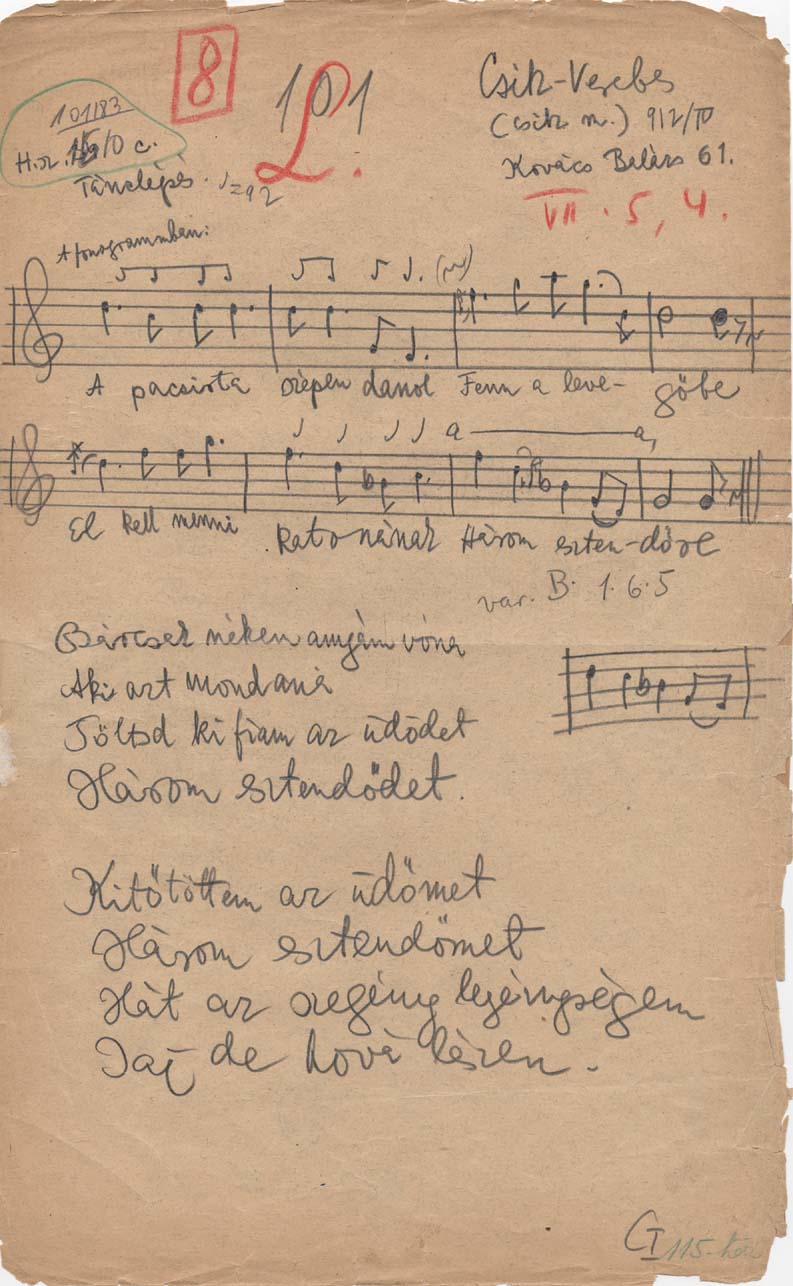 8
101
L.
Csik-Verebes
(csik m.) 912/IV
Kovács Balázs 61.
VII. 5, 4.
101/83
H.sz. /D c.
Tánclépés. ♩=92
A fonogrammban:
A pacsirta szépen danol Fenn a leve- göbe
a a,
El kell menni Katonának Három eszten-döre
var. B. 1. 6. 5
Bárcsak néken anyám vóna
Aki azt mondaná
Töltsd ki fiam az üdödet
Három esztendödet.
Kitőtöttem az üdőmet
Három esztendömet
Hát az szegény legénységem
Jaj de hová lészen.
GI 115-